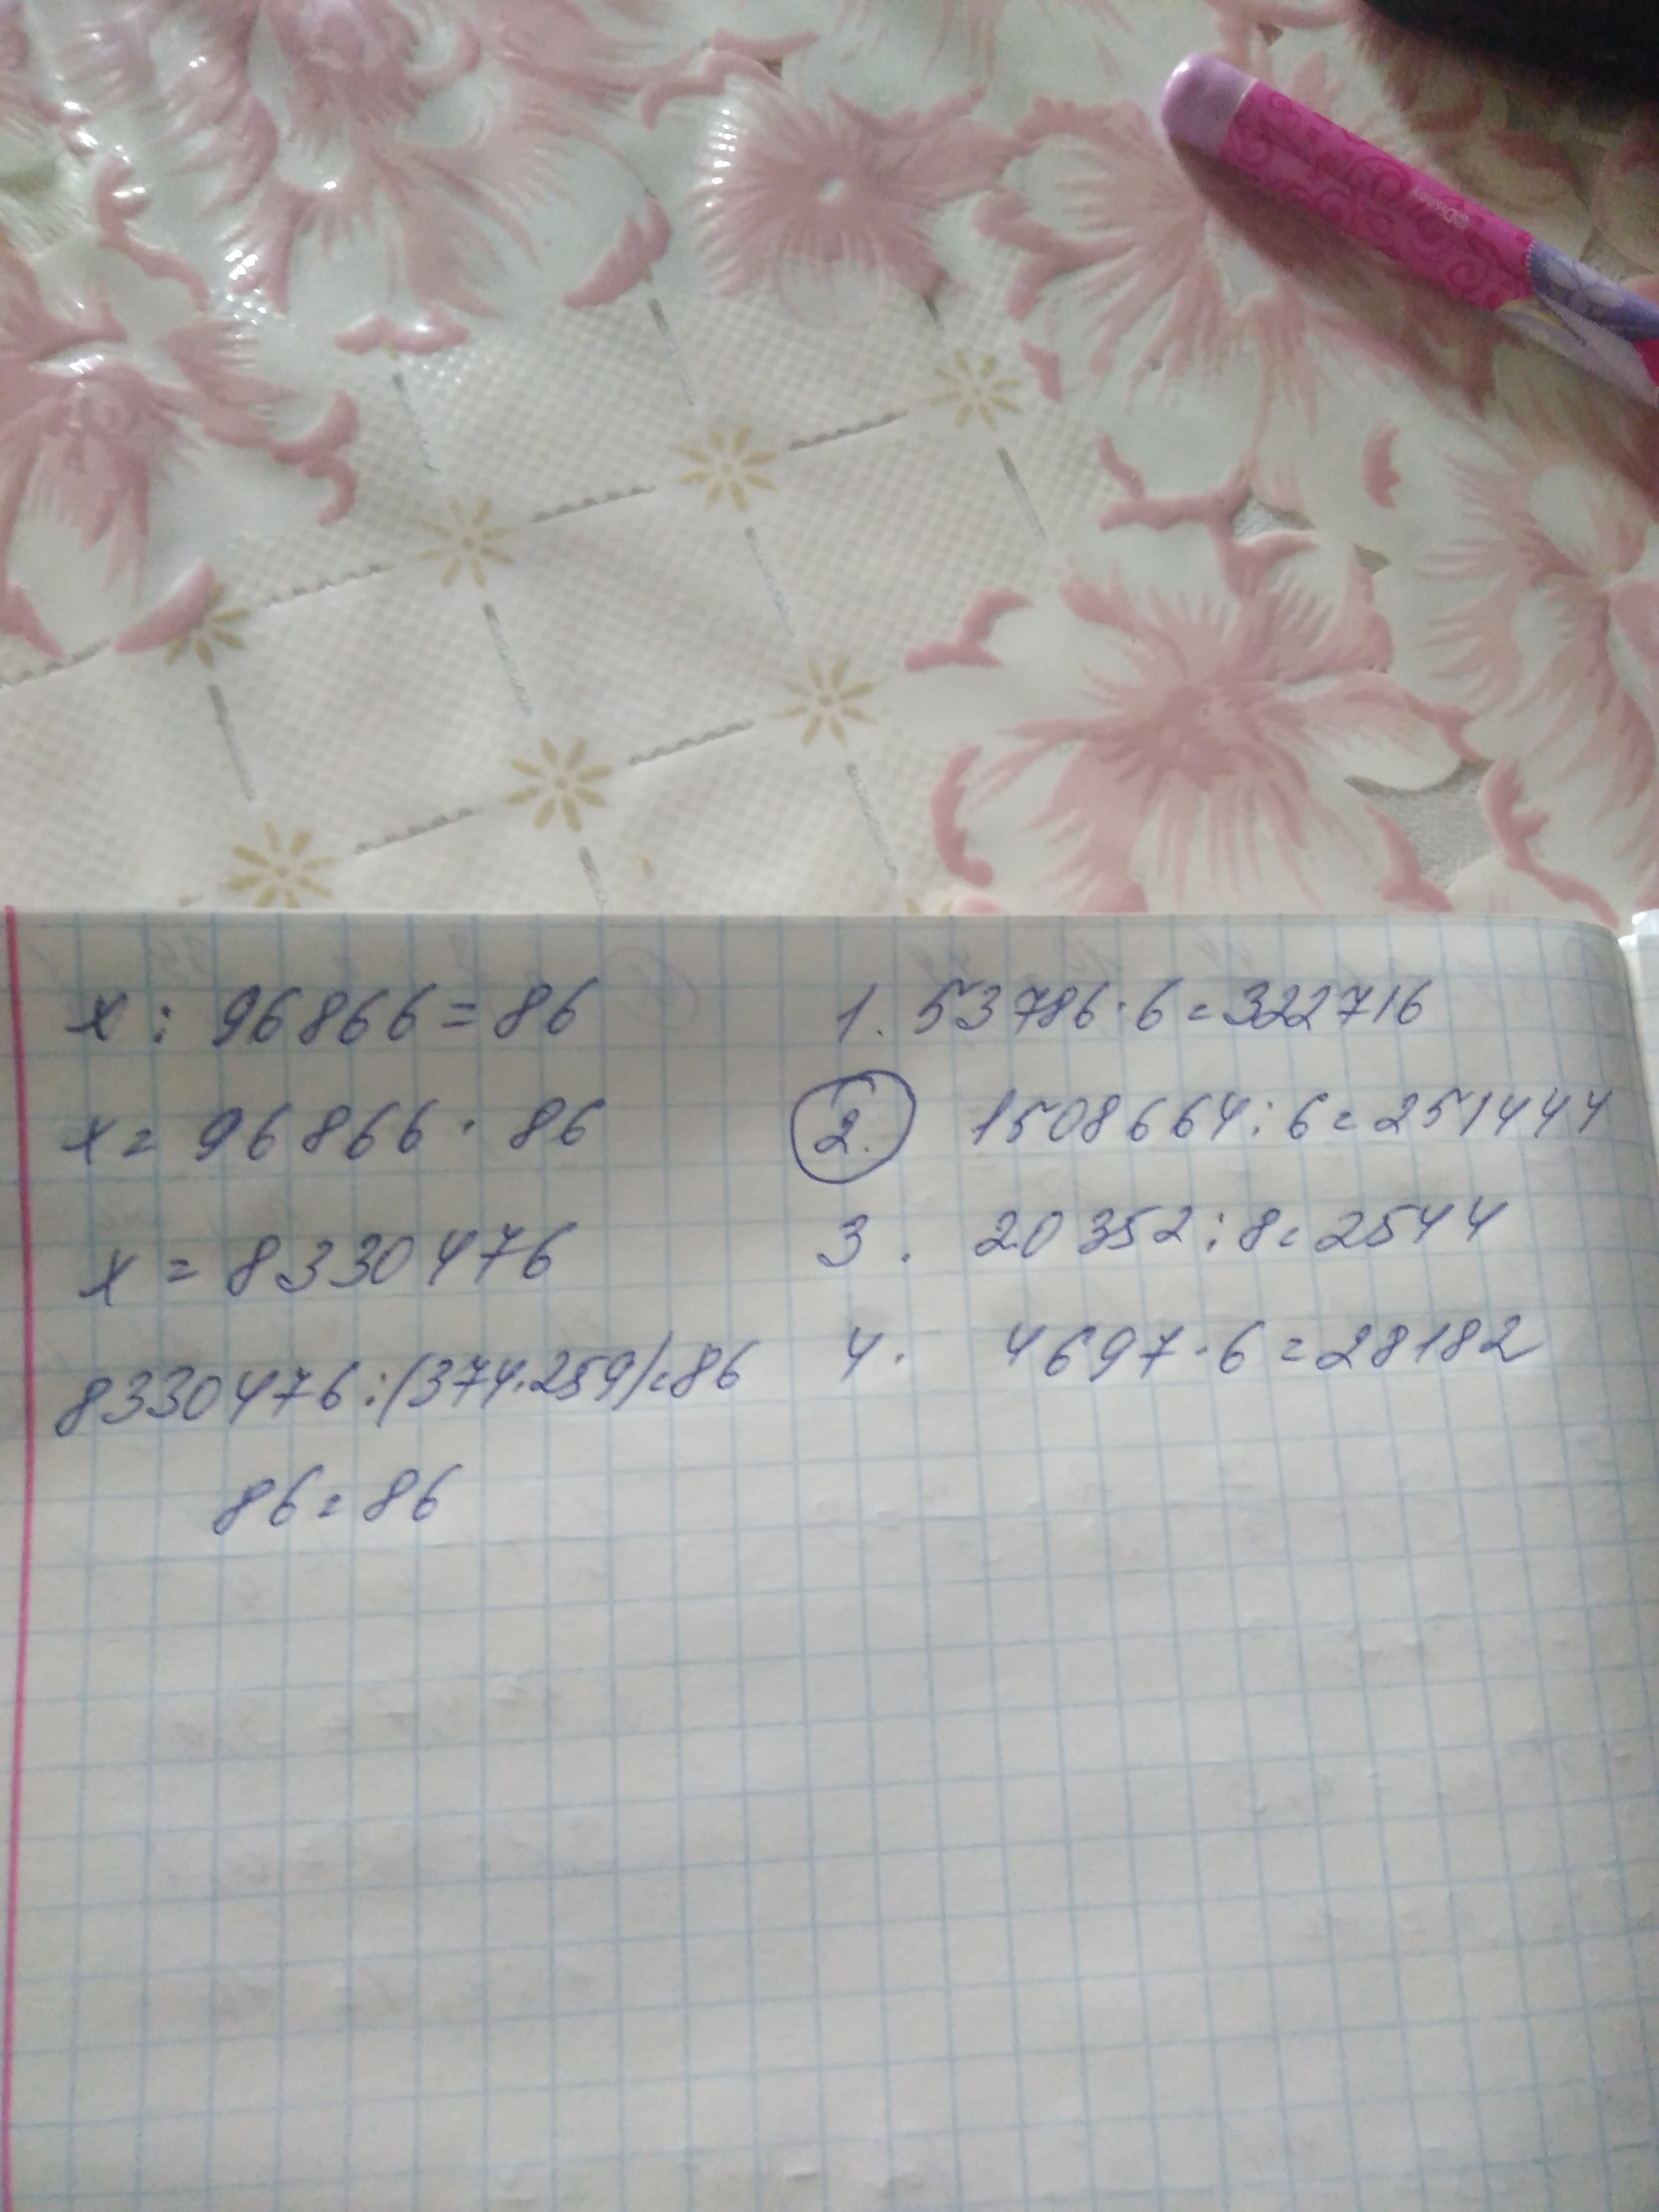 ©Disney
x : 96866 = 86
x = 96866 · 86
x = 8330476
8330476:(374·259)=86
86 = 86
1. 53786·6=322716
2. 1508664:6=251444
3. 20352:8=2544
4. 4697·6=28182